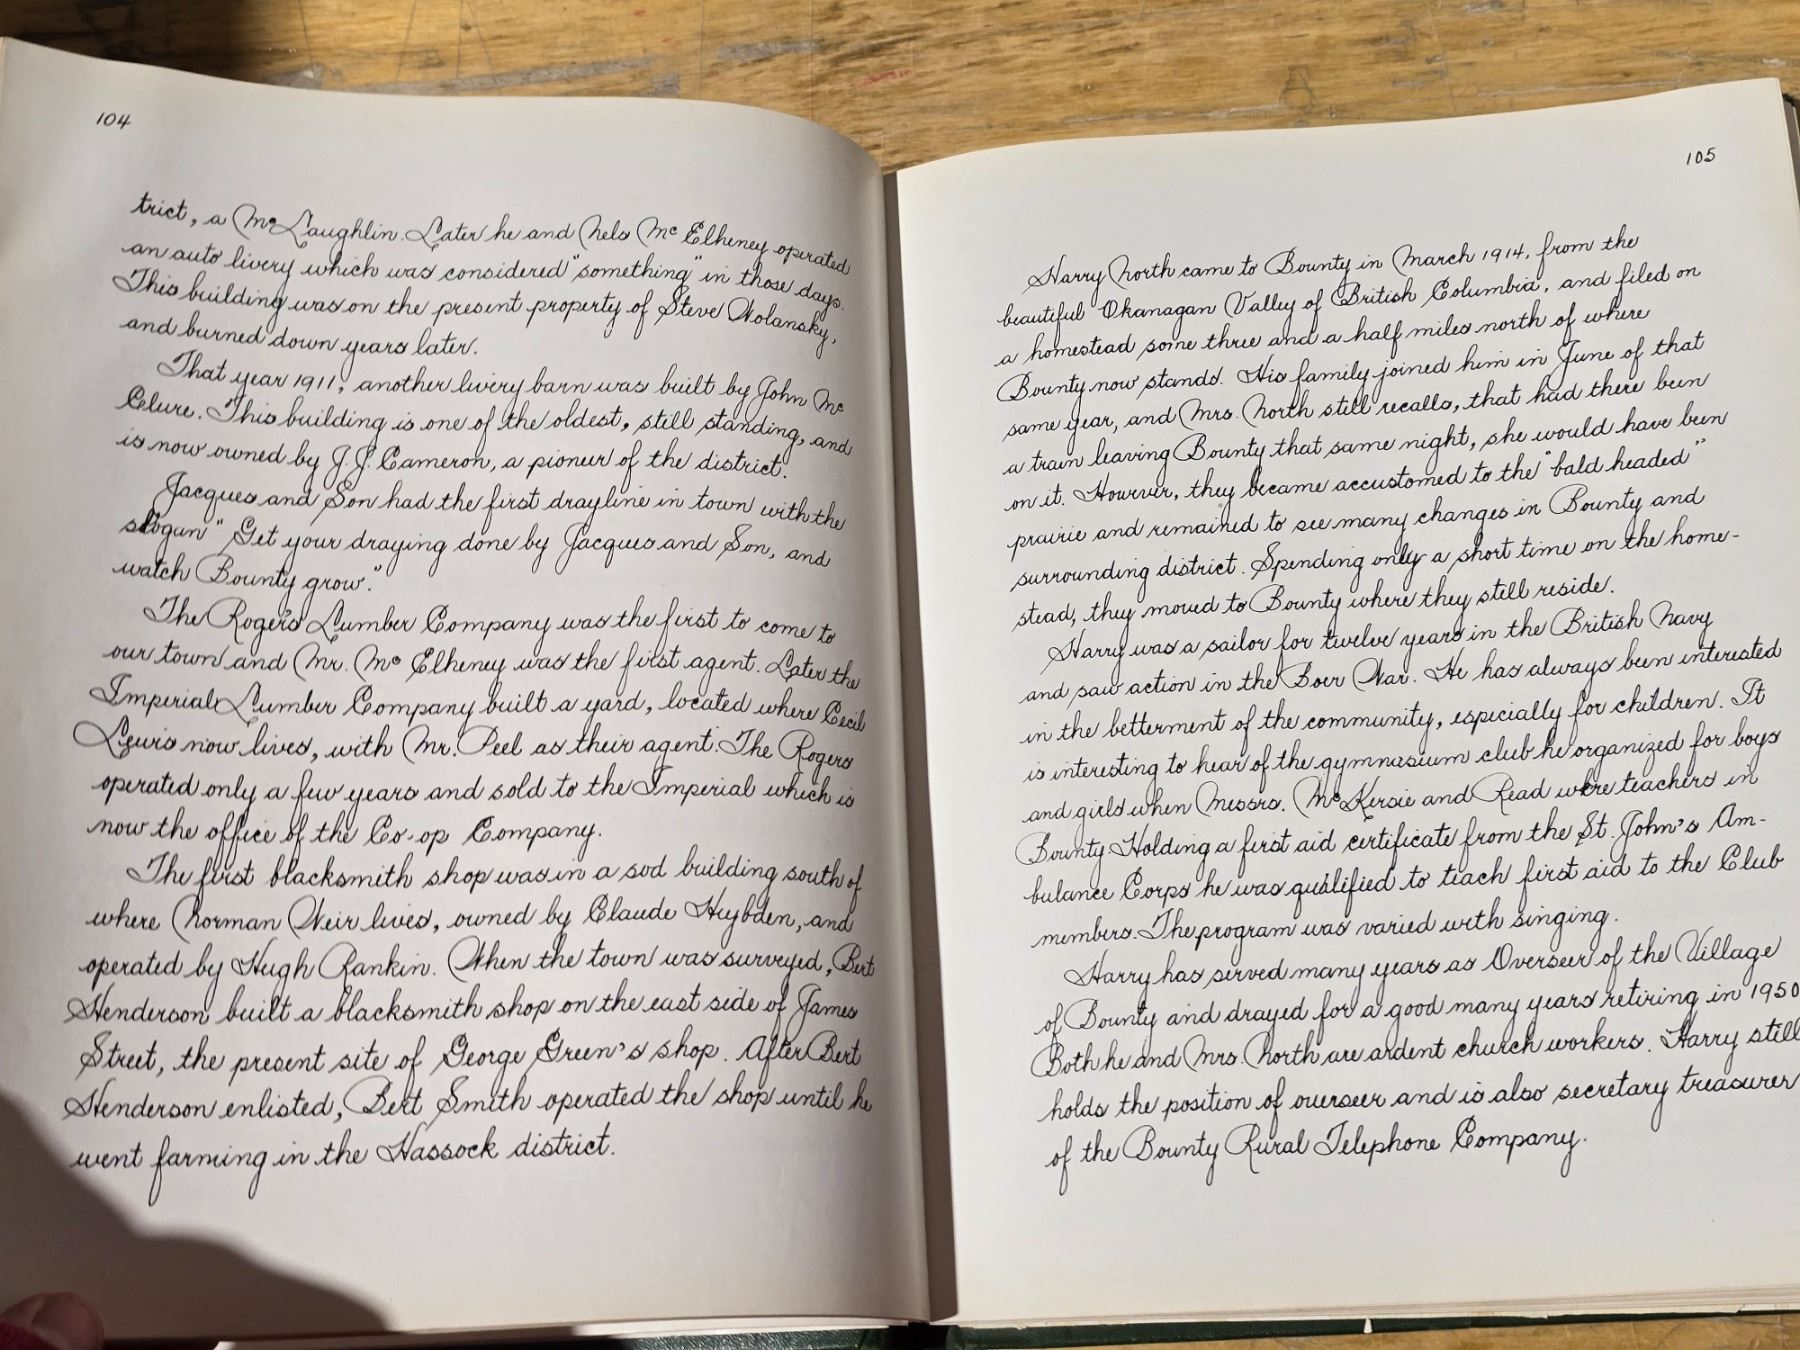 104
trict, a McLaughlin. Later he and Nels Mc Elheney operated
an auto livery which was considered "something" in those days.
This building was on the present property of Steve Wolansky,
and burned down years later.
That year 1911, another livery barn was built by John Mc
Clure. This building is one of the oldest, still standing, and
is now owned by J.J. Cameron, a pioneer of the district.
Jacques and Son had the first drayline in town with the
slogan "Get your draying done by Jacques and Son, and
watch Bounty grow."
The Roger's Lumber Company was the first to come to
our town and Mr. Mc Elheney was the first agent. Later the
Imperial Lumber Company built a yard, located where Cecil
Lewis now lives, with Mr. Peel as their agent. The Rogers
operated only a few years and sold to the Imperial which is
now the office of the Co-op Company.
The first blacksmith shop was in a sod building south of
where Norman Weir lives, owned by Claude Huybden, and
operated by Hugh Rankin. When the town was surveyed, Bert
Henderson built a blacksmith shop on the east side of James
Street, the present site of George Green's shop. After Bert
Henderson enlisted, Bert Smith operated the shop until he
went farming in the Hassock district.
105
Harry North came to Bounty in March 1914, from the
beautiful Okanagan Valley of British Columbia, and filed on
a homestead some three and a half miles north of where
Bounty now stands. His family joined him in June of that
same year, and Mrs. North still recalls, that had there been
a train leaving Bounty that same night, she would have been
on it. However, they became accustomed to the "bald headed"
prairie and remained to see many changes in Bounty and
surrounding district. Spending only a short time on the home-
stead, they moved to Bounty where they still reside.
Harry was a sailor for twelve years in the British Navy
and saw action in the Boer War. He has always been interested
in the betterment of the community, especially for children. It
is interesting to hear of the gymnasium club he organized for boys
and girls when Messrs. McKersie and Read were teachers in
Bounty Holding a first aid certificate from the St. John's Am-
bulance Corps he was qualified to teach first aid to the Club
members. The program was varied with singing.
Harry has served many years as Overseer of the Village
of Bounty and drayed for a good many years retiring in 1950
Both he and Mrs. North are ardent church workers. Harry still
holds the position of overseer and is also secretary treasurer
of the Bounty Rural Telephone Company.